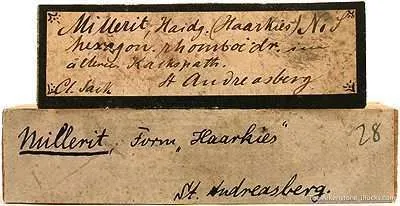 Millerit, Haidg. (Haarkies) Ni S
hexagon. rhomboidr. in
älterem Kalkspath.
Cl. Sack St Andreasberg
Millerit, Form „Haarkies"
28
St. Andreasberg.